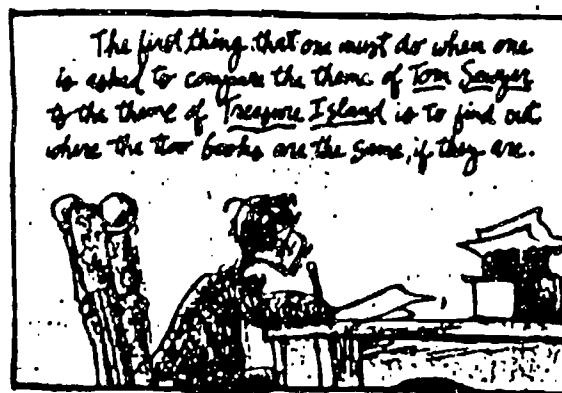 The first thing that one must do when one
is asked to compare the theme of Tom Sawyer
to the theme of Treasure Island is to find out
where the two books are the same, if they are.